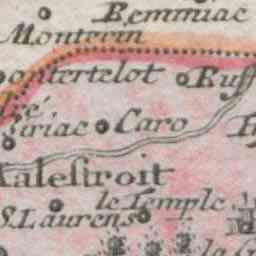 Bemmiac
Montevin
ontertelot
Ruff
lié
siriac
Caro
alestroit
le Temple
S. Laurens
la G